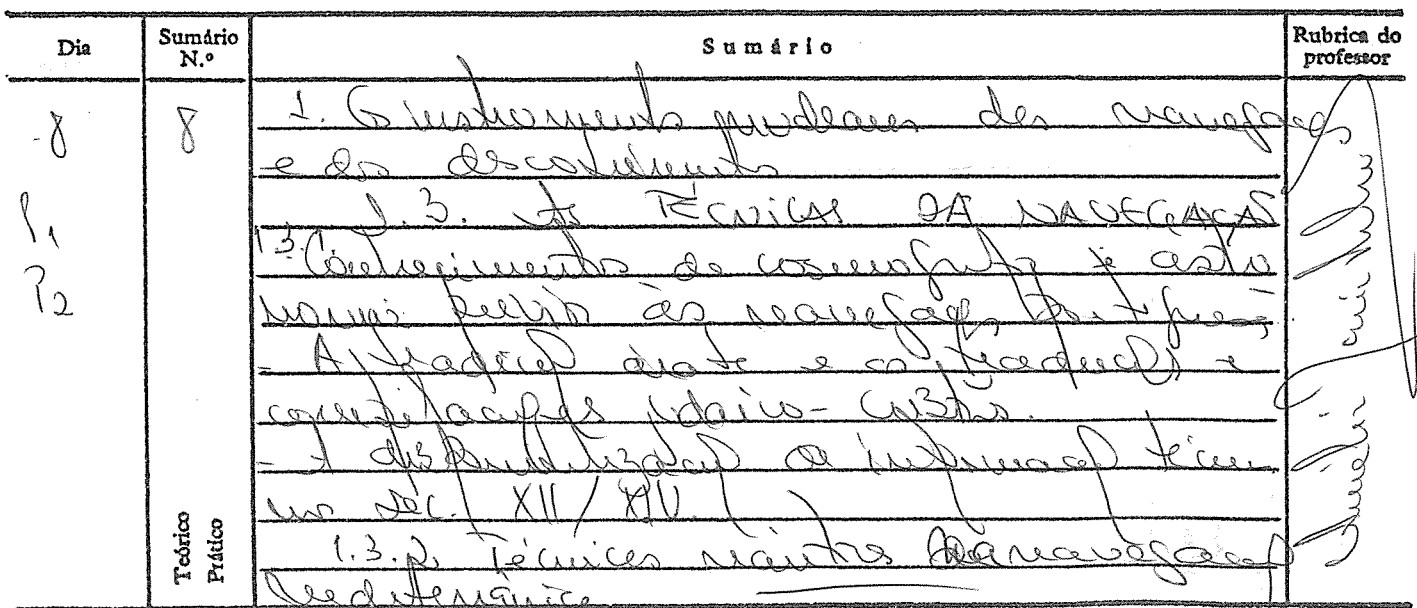 Dia Sumário N.º Sumário Rubrica do professor
8 8 1. Os instrumentos modeladores das navegações
e dos descobrimentos
P1 1.3. As TÉCNICAS DA NAVEGAÇÃO
P2 1.3.1. Conhecimentos de cosmografia e astro
nomia às navegações
- A tradição árabe e as traduções e
compilações judaico-cristãs.
- A disponibilização da informação técnica
nos séc. XII/XIV.
Teórico Prático
1.3.2. Técnicas náuticas da navegação
Mediterrânica